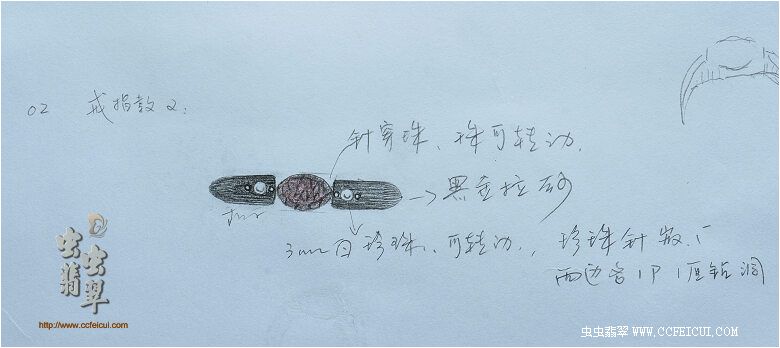 02 戒指款2:
针穿珠、珠可转动.
→黑金拉砂
3mm白珍珠、可转动、珍珠针
两边各1P 1厘钻洞
虫虫翡翠
http://www.ccfeicui.com
虫虫翡翠 WWW.CCFEICUI.COM